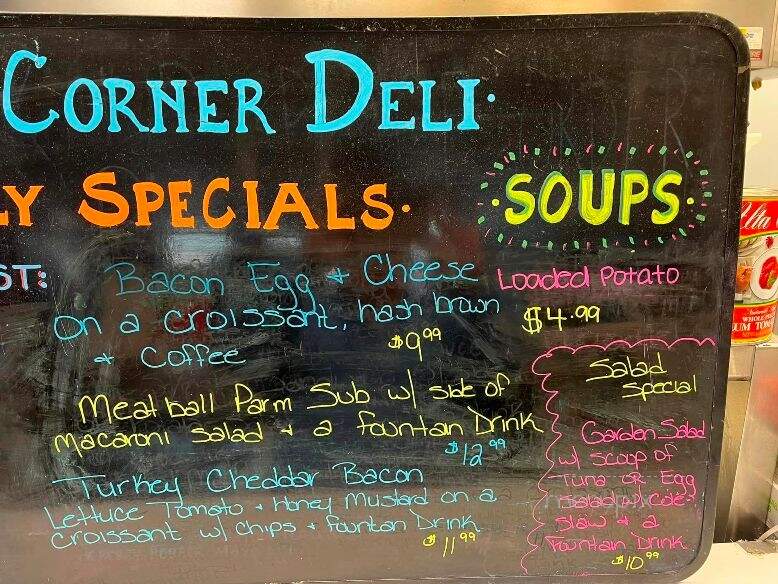 CORNER DELI.
LY SPECIALS.
SOUPS.
ST: Bacon Egg + Cheese
on a croissant, hash brown
+ Coffee
$9.99
Meatball Parm Sub w/ side of
macaroni salad + a fountain Drink
$12.99
Turkey Cheddar Bacon
Lettuce Tomato + Honey Mustard on a
croissant w/ chips + fountain Drink
$11.99
Loaded Potato
$4.99
Salad
special
Garden Salad
w/ scoop of
Tuna or Egg
salad, cole-
slaw + a
Fountain Drink
$10.99